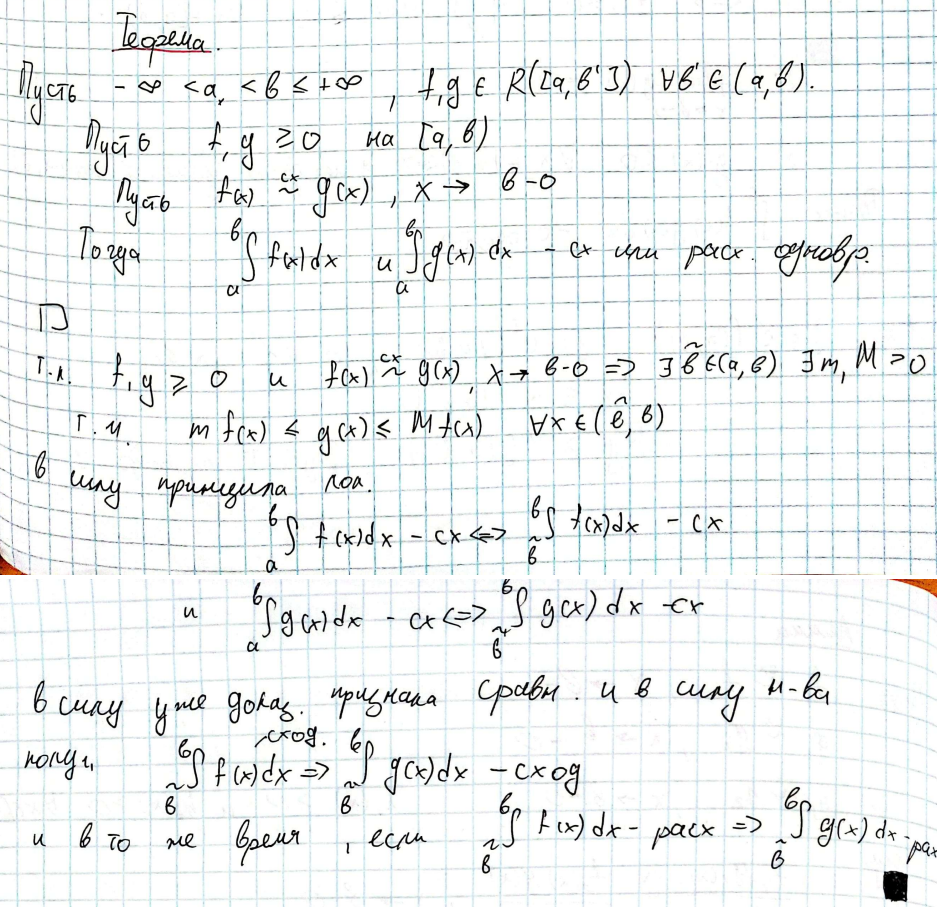 Теорема.
Пусть -∞ < a < в ≤ +∞ , f,g ∈ R([a,в']) ∀в' ∈ (a,в).
Пусть f, g ≥ 0 на [a,в)
Пусть f(x) ~^{сх} g(x) , x → в-0
Тогда ∫_a^в f(x)dx и ∫_a^в g(x)dx - сх или расх. одновр.
П
Т.к. f,g ≥ 0 и f(x) ~^{сх} g(x), x → в-0 => ∃ в̃ ∈ (a,в) ∃ m, M > 0
т.ч. m f(x) ≤ g(x) ≤ M f(x) ∀x ∈ (в̃, в)
в силу принципа лок.
∫_a^в f(x)dx - сх <=> ∫_в̃^в f(x)dx - сх
и ∫_a^в g(x)dx - сх <=> ∫_в̃^в g(x)dx - сх
в силу уже доказ. признака сравн. и в силу н-ва
получ ∫_в̃^в f(x)dx сход. => ∫_в̃^в g(x)dx - сход
и в то же время , если ∫_в̃^в f(x)dx - расх => ∫_в̃^в g(x)dx - рах